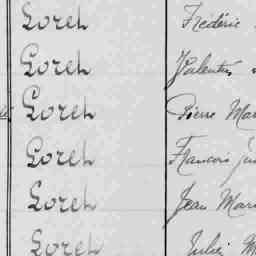 Loreh Frédéric
Loreh Valentin
Loreh Pierre Mar
Loreh Francois
Loreh Jean Mari
Loreh Jules M